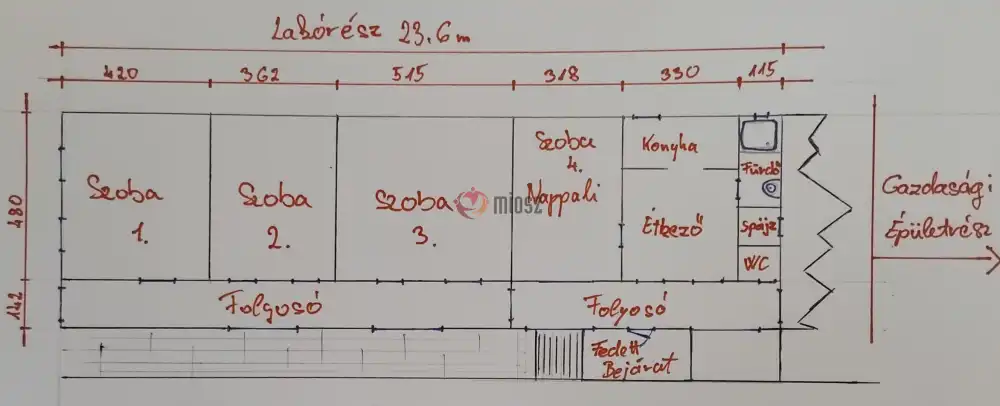 Lakórész 23.6m
420 362 515 318 330 115
480
142
Szoba
1.
Szoba
2.
Szoba
3.
Szoba
4.
Nappali
Konyha
Étkező
Fürdő
Spájz
WC
Folyosó
Folyosó
Fedett
Bejárat
Gazdasági
Épületrész
miosz